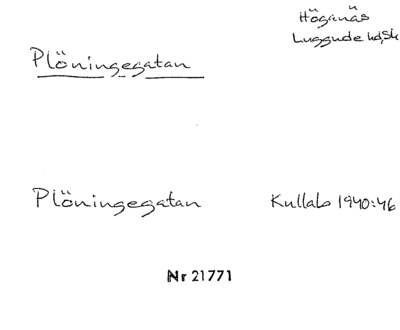 Höganäs
Luggude hd, Sk
Plöningegatan
Plöningegatan Kullab 1940:46
Nr 21771